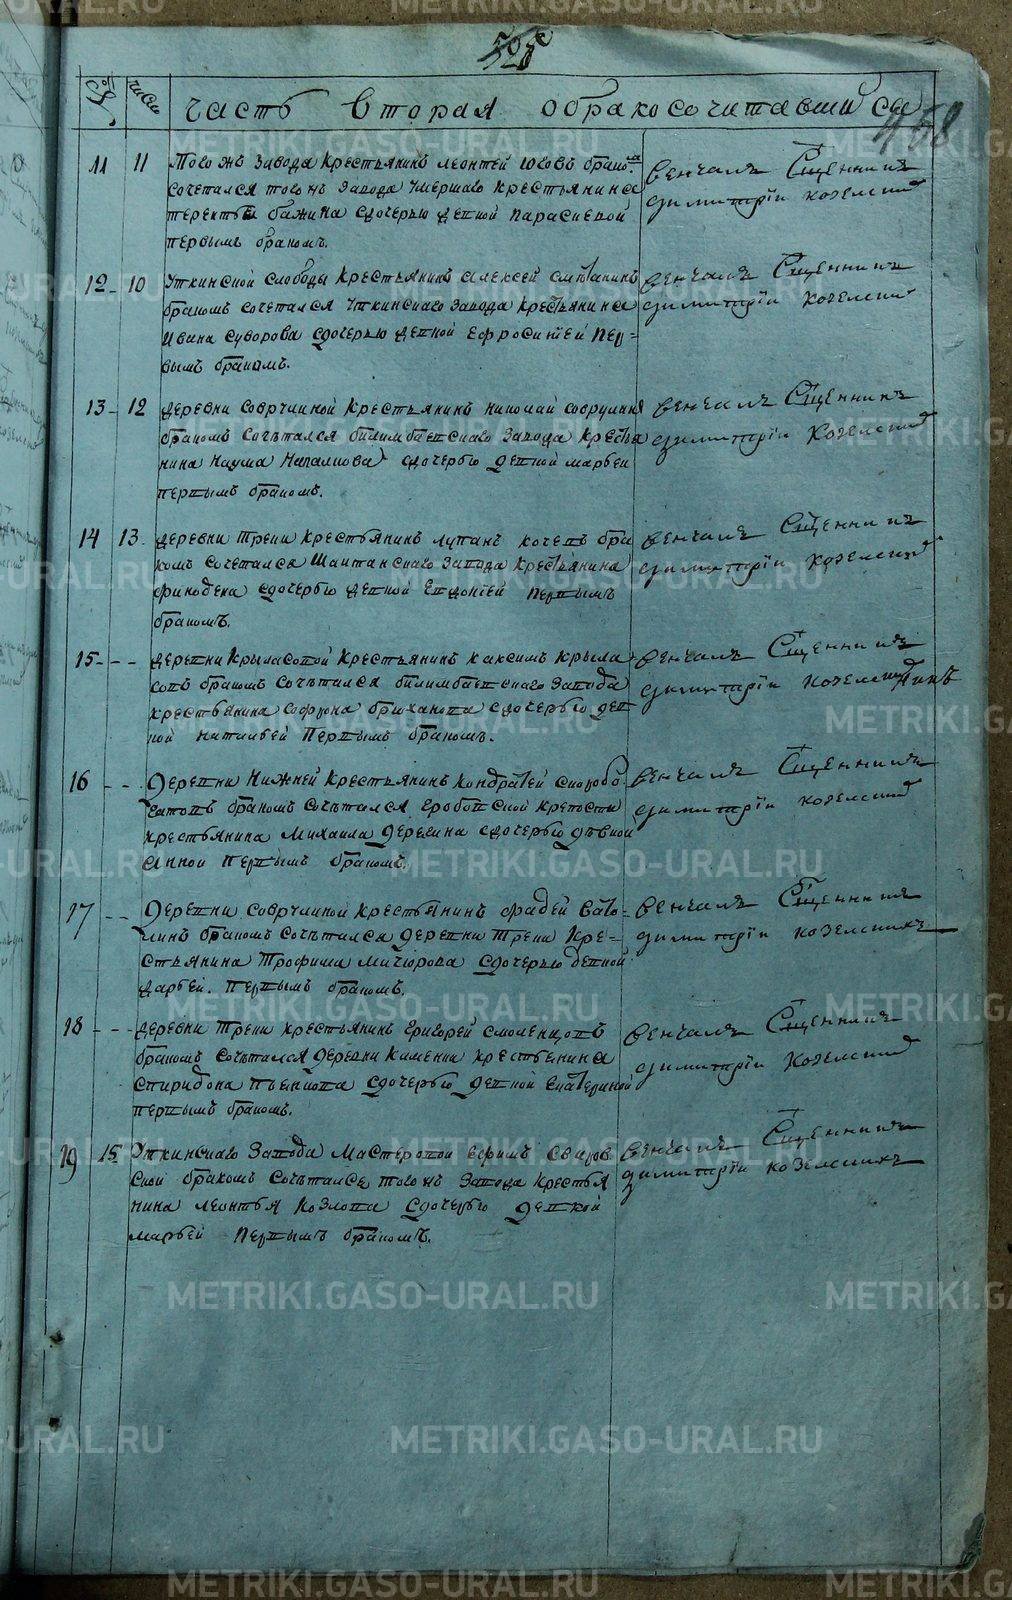 часть вторая обракосочитавшихся
468
11 11 Того жъ завода крестьянинъ леонтей браком
сочетался того жъ завода умершаго крестьянина
терентья бажина сдочерью девкой парасковей
первымъ бракомъ.
венчалъ Сщенникъ
димитрiи козелскии
12 10 Уткинской слободы крестьянинъ алексей
бракомъ сочетался уткинскаго завода крестьянина
Ивана суворова сдочерью девкой Ефросинiей пер=
вымъ бракомъ.
венчалъ Сщенникъ
димитрiи козелскии
13 12 деревни крестьянинъ николай
бракомъ сочѣтался билимбаевскаго завода крестья
нина наума сдочерью девкой марвеи
первымъ бракомъ.
венчалъ Сщенникъ
димитрiи козелскии
14 13 деревни треки крестьянинъ лупанъ кочевъ бра
комъ сочетался Шайтанскаго завода крестьянина
сдочерью девкой Евдокiей первымъ
бракомъ.
венчалъ Сщенникъ
димитрiи козелскии
15 - - деревни крыласовой крестьянинъ максимъ крыла
совъ бракомъ сочѣтался билимбаевскаго завода
крестьянина софрона брюханова сдочерью дев
кой натальей первымъ бракомъ.
венчалъ Сщенникъ
димитрiи козелскии
16 - - деревни нижней крестьянинъ кондратей скоробо
гатовъ бракомъ сочѣтался гробовской крепости
крестьянина михаила дерегина сдочерью дѣвкой
анной первымъ бракомъ.
венчалъ Сщенникъ
димитрiи козелскии
17 - - деревни крестьянинъ фадей
бракомъ сочѣтался деревни треки кре=
стьянина трофима мичюрова сдочерью девкой
дарьей. первымъ бракомъ.
венчалъ Сщенникъ
димитрiи козелскихъ
18 - - деревни треки крестьянинъ григорей смоленцовъ
бракомъ сочѣтался деревни каменки крестьянина
спиридона пьянкова сдочерью девкой Екатериной
первымъ бракомъ.
венчалъ Сщенникъ
димитрiи козелскии
19 15 Уткинскаго завода мастеровой ефимъ
бракомъ сочѣтался того жъ завода крестья
нина леонтья козлова сдочерью девкой
марвей первымъ бракомъ.
венчалъ Сщенникъ
димитрiи козелскихъ
METRIKI.GASO-URAL.RU